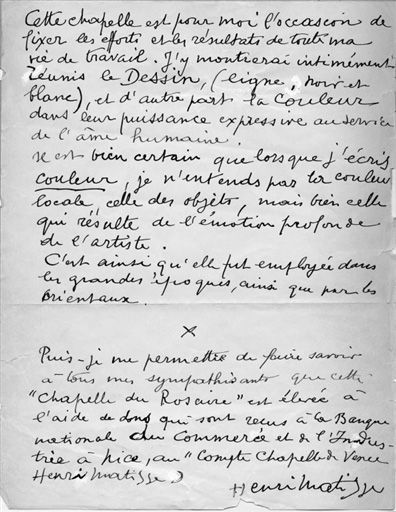 Cette chapelle est pour moi l'occasion de
fixer les efforts et les résultats de toute ma
vie de travail. J'y montrerai intimement
réunis le Dessin, (ligne, noir et
blanc), et d'autre part la Couleur
dans leur puissance expressive au service
de l'âme humaine.
Il est bien certain que lorsque j'écris
couleur, je n'entends pas la couleur
locale, celle des objets, mais bien celle
qui résulte de l'émotion profonde
de l'artiste.
C'est ainsi qu'elle fut employée dans
les grandes époques, ainsi que par les
Orientaux.
x
Puis-je me permettre de faire savoir
à tous mes sympathisants que cette
"Chapelle du Rosaire" est élevée à
l'aide de dons qui sont reçus à la Banque
nationale du Commerce et de l'Indus-
trie à Nice, au "Compte Chapelle de Vence
Henri Matisse)
Henri Matisse